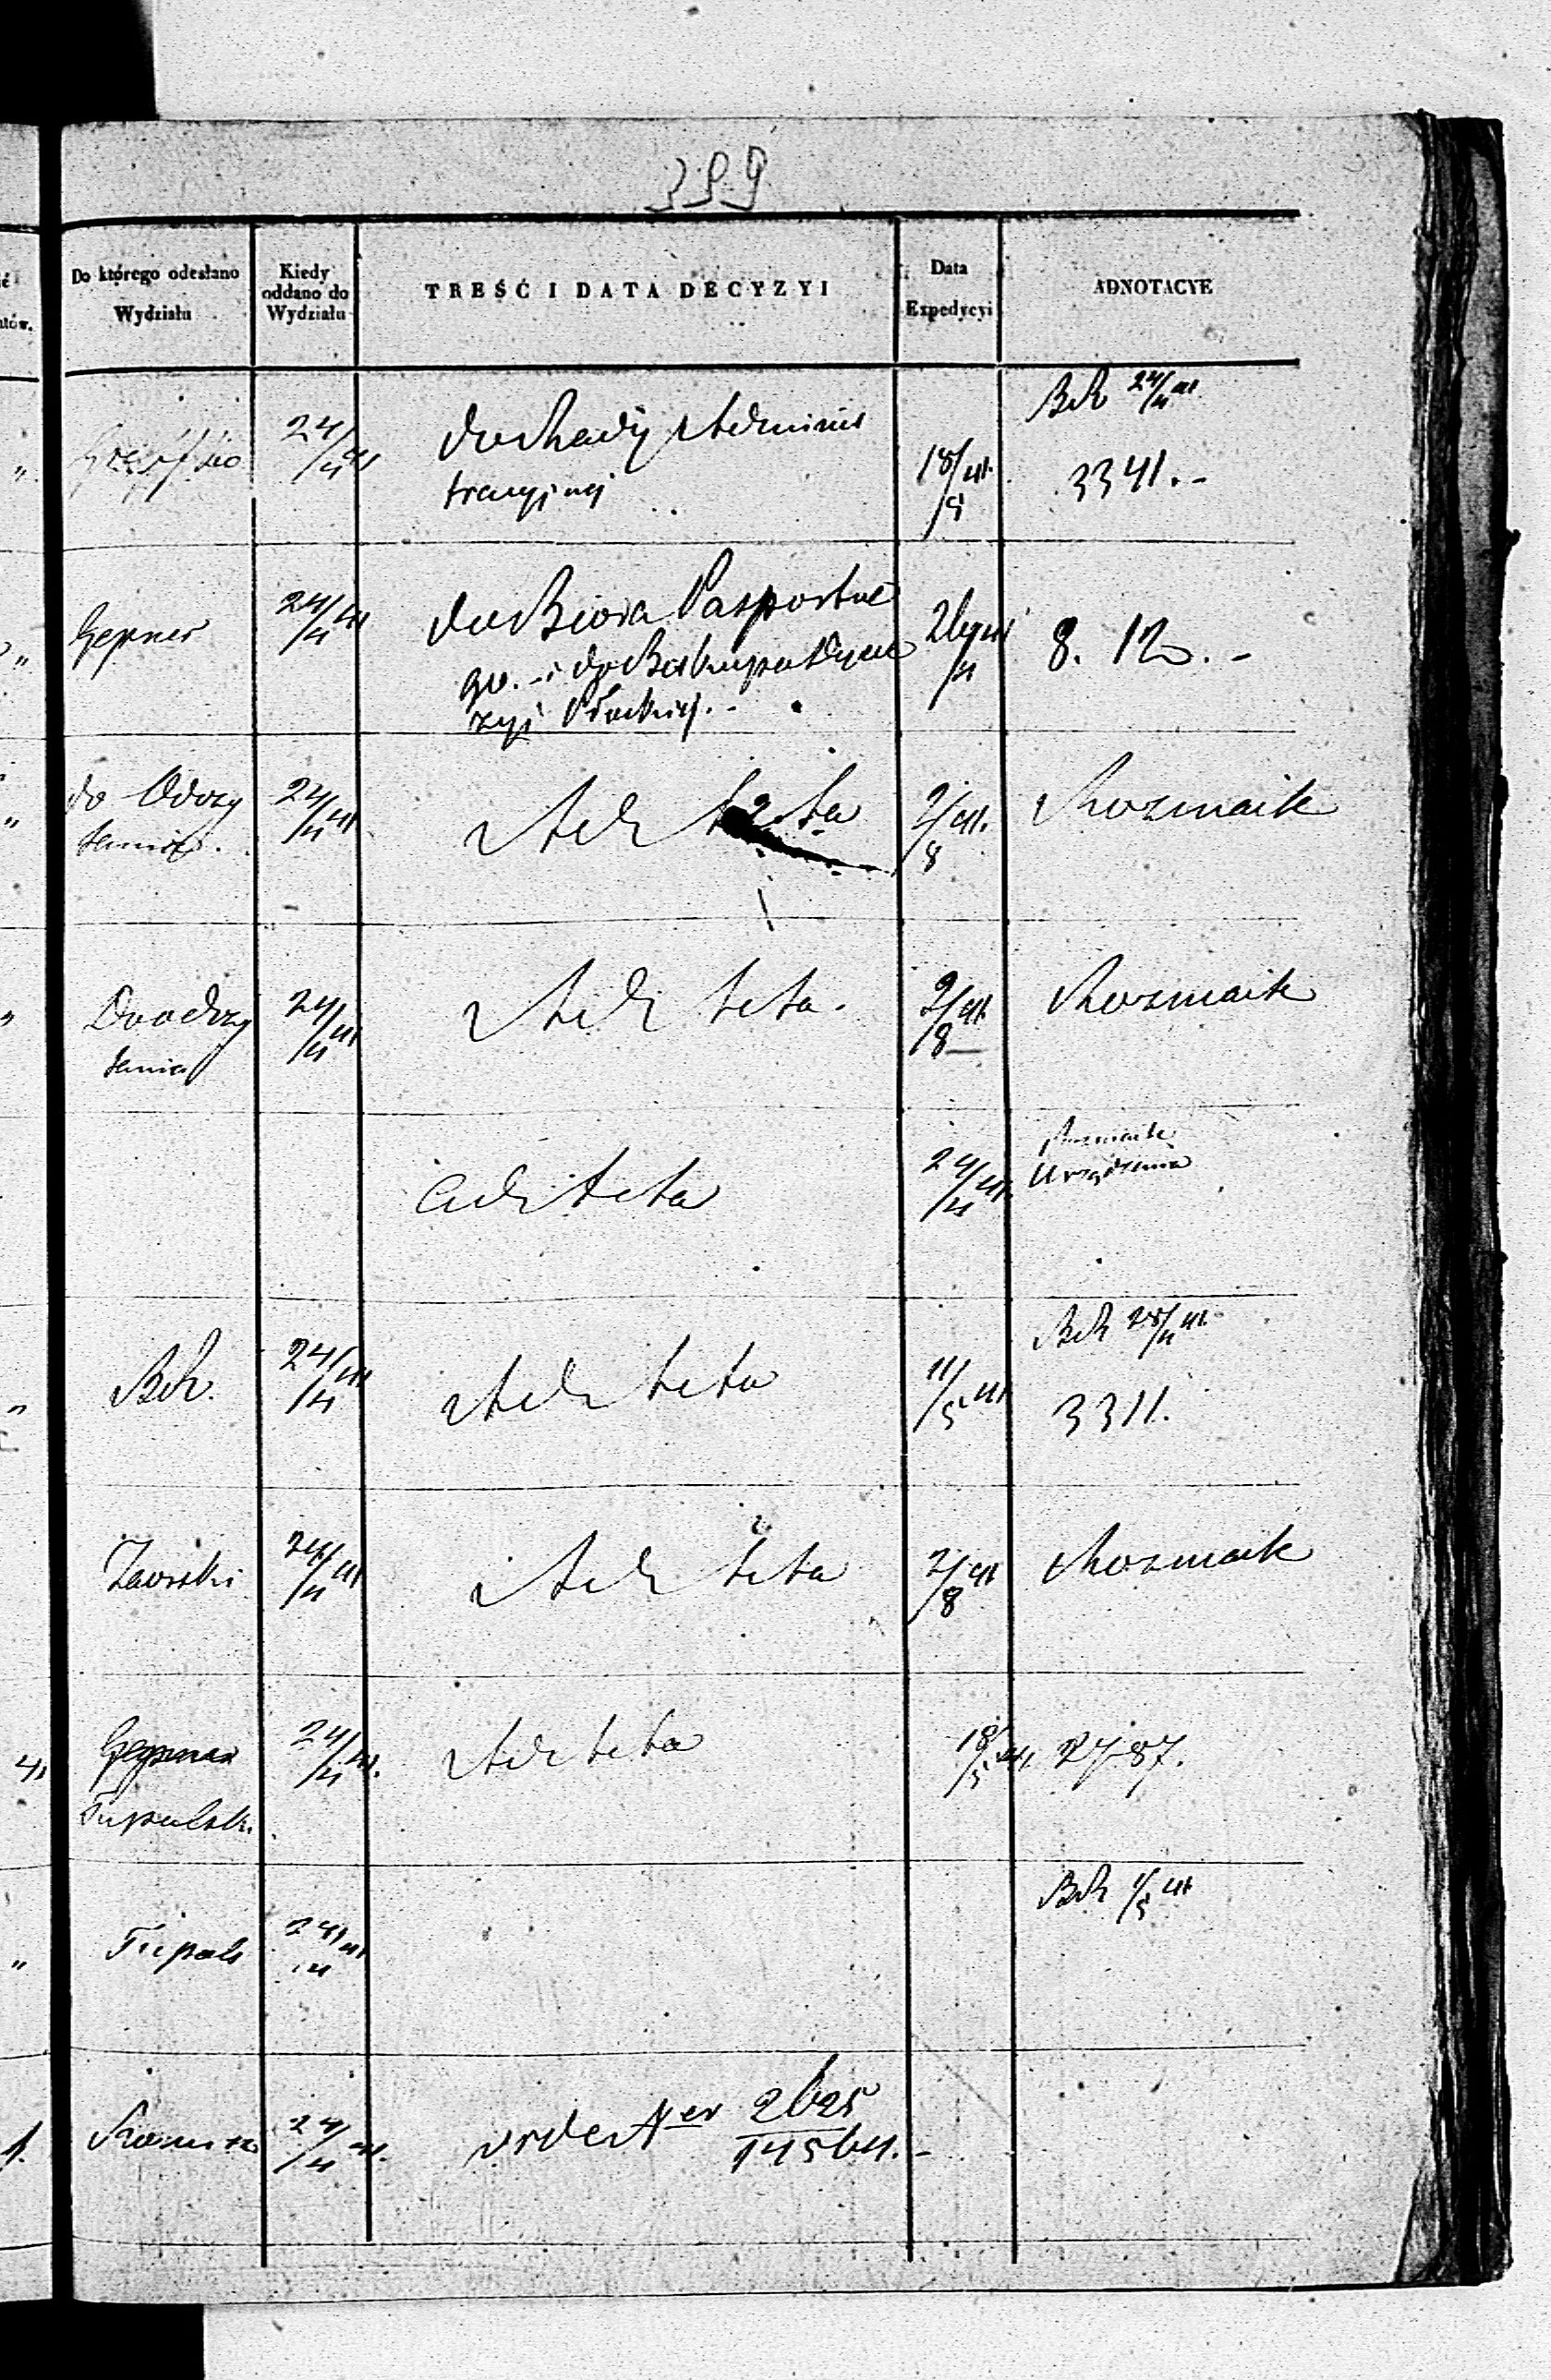 399
Do którego odesłano Wydziału
Kiedy oddano do Wydziału
TREŚĆ I DATA DECYZYI
Data Expedycyi
ADNOTACYE
24/4 41
do Rady Adminis
tracyjnej
18/5 41.
BR 24/4 41
3341.-
Gepner
24/4 41
do Biora Paszportowe
go. - i do
zyi Płockiej. -
8. 12. -
do Odczy
tania.
24/4 41
Ad acta
2/8 41.
Rozmaite
Do odczy
tania
24/4 41
Ad acta.
2/8 41
Rozmaite
ad acta
24/4 41.
Rozmaite
Urządzenia
BR.
24/4 41
Ad acta
11/5 41
BR 28/4 41.
3311.
Zaorski
24/4 41
Ad acta
2/8 41
Rozmaite
Gepner
Tupalski
24/4 41.
Ad acta
18/5 41.
2787.
Tupals
24/4 41
BR 1/5 41
24/4 41.
vide Ner 2625/14564.-